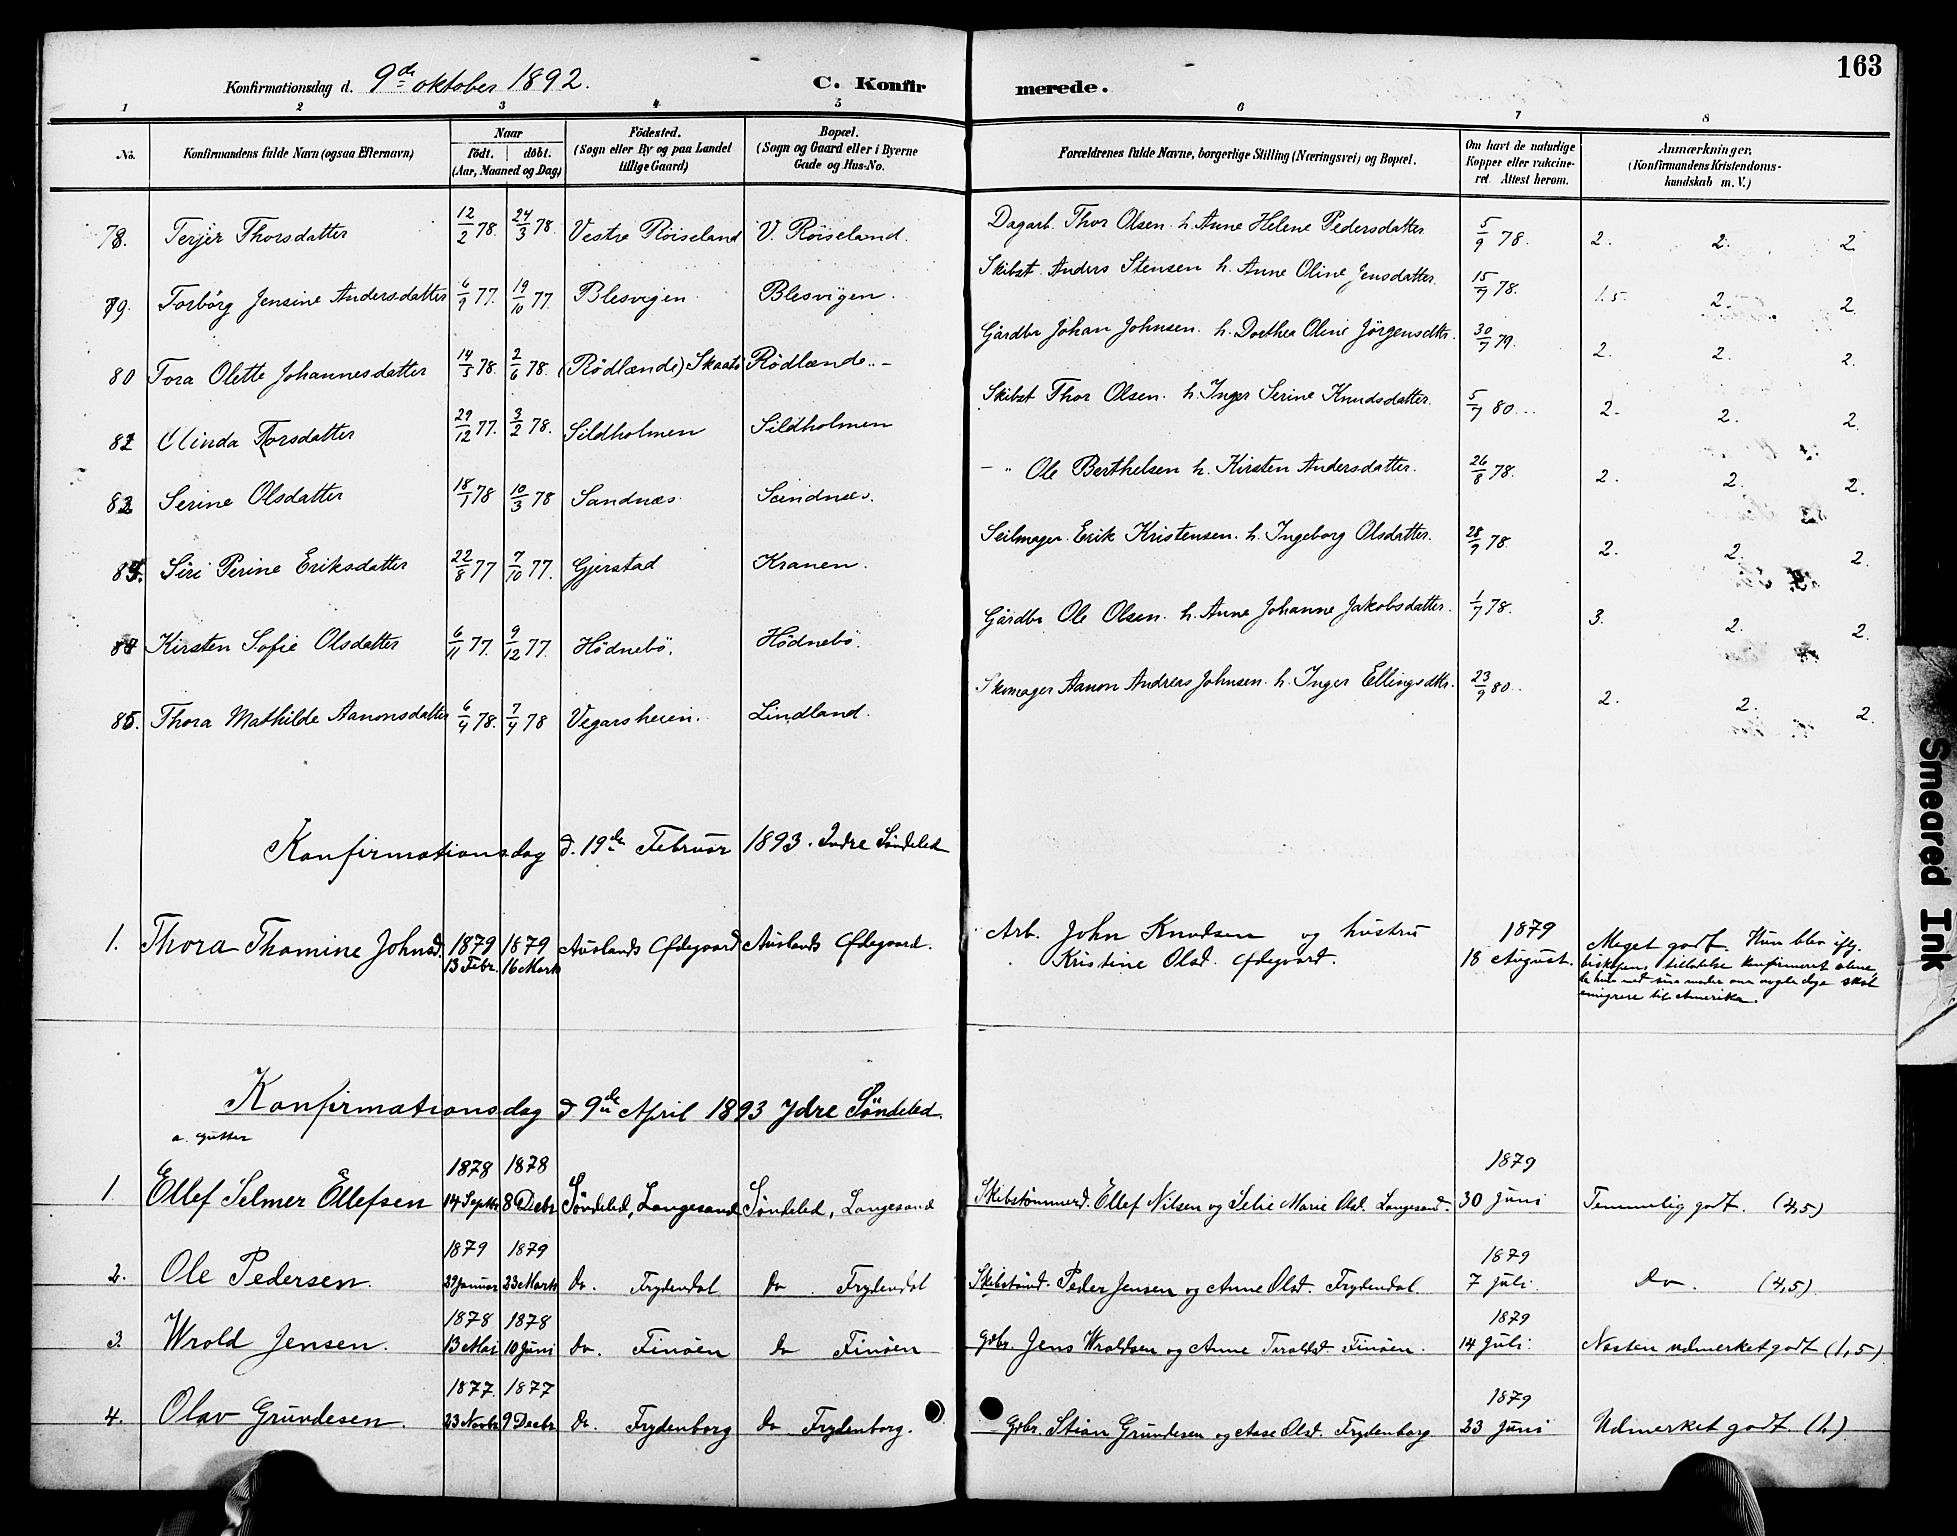 163
Konfirmationsdag d. 9de oktober 1892. C. Konfir merede.
1 2 3 4 5 6 7 8
No. Konfirmandens fulde Navn (ogsaa Efternavn) Naar Födt. döbt. (Aar, Maaned og Dag) Födested. (Sogn eller By og paa Landet tillige Gaard) Bopæl. (Sogn og Gaard eller i Byerne Gade og Hus-No. Forældrenes fulde Navne, borgerlige Stilling (Næringsvei) og Bopæl. Om havt de naturlige Kopper eller vakcineret. Attest herom. Anmærkninger. (Konfirmandens Kristendomskundskab m. V.)
78. Terjer Thorsdatter 12/2 78. 24/3 78. Vestre Röiseland V. Röiseland. Dagarb. Thor Olsen. h. Anne Helene Pedersdatter 5/9 78. 2. 2. 2
79. Torbörg Jensine Andersdatter 6/9 77. 19/10 77. Blesvigen Blesvigen. Skibst. Anders Stensen h. Anne Oline Jensdatter. 15/7 78. 1.5. 2. 2
80 Tora Olette Johannesdatter 14/3 78. 2/6 78. (Rödlænde) Skaatö Rödlænde.. – Gårdbr Johan Johnsen. h. Dorthea Oline Jörgensdtr. 30/7 79. 2. 2. 2.
81 Olinda Torsdatter 29/12 77. 3/2 78. Sildholmen Sildholmen Skibst Thor Olsen. h. Inger Serine Knudsdatter. 5/7 80... 2. 2. 2.
82 Serine Olsdatter 18/1 78 10/3 78 Sandnæs. Sandnæs. – " Ole Berthelsen h. Kirsten Andersdatter. 26/8 78. 2. 2. 2.
83. Siri Perine Eriksdatter 22/8 77 7/10 77. Gjerstad Kranen. Seilmager. Erik Kristensen. h. Ingeborg Olsdatter. 28/9 78. 2. 2. 2.
84 Kirsten Sofie Olsdatter 6/11 77. 9/12 77. Hödnebö. Hödnebö. Gårdbr Ole Olsen. h. Anne Johanne Jakobsdatter. 1/7 78. 3. 2. 2.
85. Thora Mathilde Aanonsdatter 6/4 78. 7/7 78 Vegarsheien. Lindland. Skomager Aanon Andreas Johnsen. h. Inger Ellingsdtr. 23/9 80.. 2. 2. 2.
Konfirmationsdag d. 19de Februar 1893. Indre Söndeled
1. Thora Thomine Johnsd. 1879 13 Febr. 1879 16 Marts Auslands Ödegaard Auslands Ödegaard. Arb. John Knudsen og hustru Kristine Olsd. Ödegaard. 1879 18 August. Meget godt. Hun blev iflg.
biskopens tilladelse konfirmeret alene,
da hun med sin moder om nogle dage skal
emigrere til Amerika.
Konfirmationsdag d 9de April 1893 Ydre Söndeled.
a. Gutter
1. Ellef Selmer Ellefsen 1878 14 Septbr 1878 8 Decbr Söndeled, Langesand Söndeled, Langesand Skibstømmerd. Ellef Nilsen og Selie Marie Olsd. Langesand. 1879 30 Juni Temmelig godt. (4,5)
2. Ole Pedersen. 1879 29 Januar 1879 23 Marts do. Frydendal do. Frydendal Skibstömd. Peder Jensen og Anne Olsd. Frydendal. 1879 7 Juli. Do. (4,5).
3. Wrold Jensen. 1878 13 Mai 1878 10 Juni do. Finöen do Finöen Gdbr. Jens Wroldsen og Anne Taraldsd Finöen. 1879 14 Juli. Næsten udmerket godt (1,5)
4. Olav Grundesen. 1877 23 Novbr 1877 9 Decbr do. Frydenborg do. Frydenborg. Gdbr. Stian Grundesen og Aase Olsd. Frydenborg 1879 23 Juni Udmerket godt. (1.)
Smeared Ink